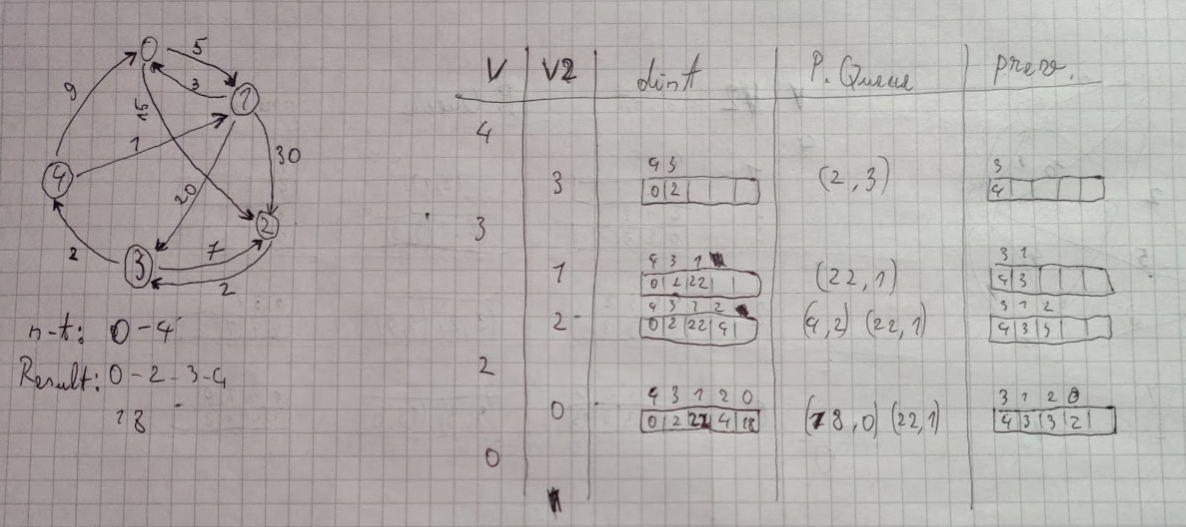 0
5
1
3
9
15
1
30
4
20
2
3
7
2
2
n-t: 0-4
Result: 0-2-3-4
18
V V2 dist P. Queue prev.
4
4 3 3
3 0 2 (2,3) 4
3
4 3 1 3 1
1 0 2 22 (22,1) 4 3
4 3 1 2 3 1 2
2 0 2 22 4 (4,2) (22,1) 4 3 3
2
4 3 1 2 0 3 1 2 0
0 0 2 22 4 18 (18,0) (22,1) 4 3 3 2
0